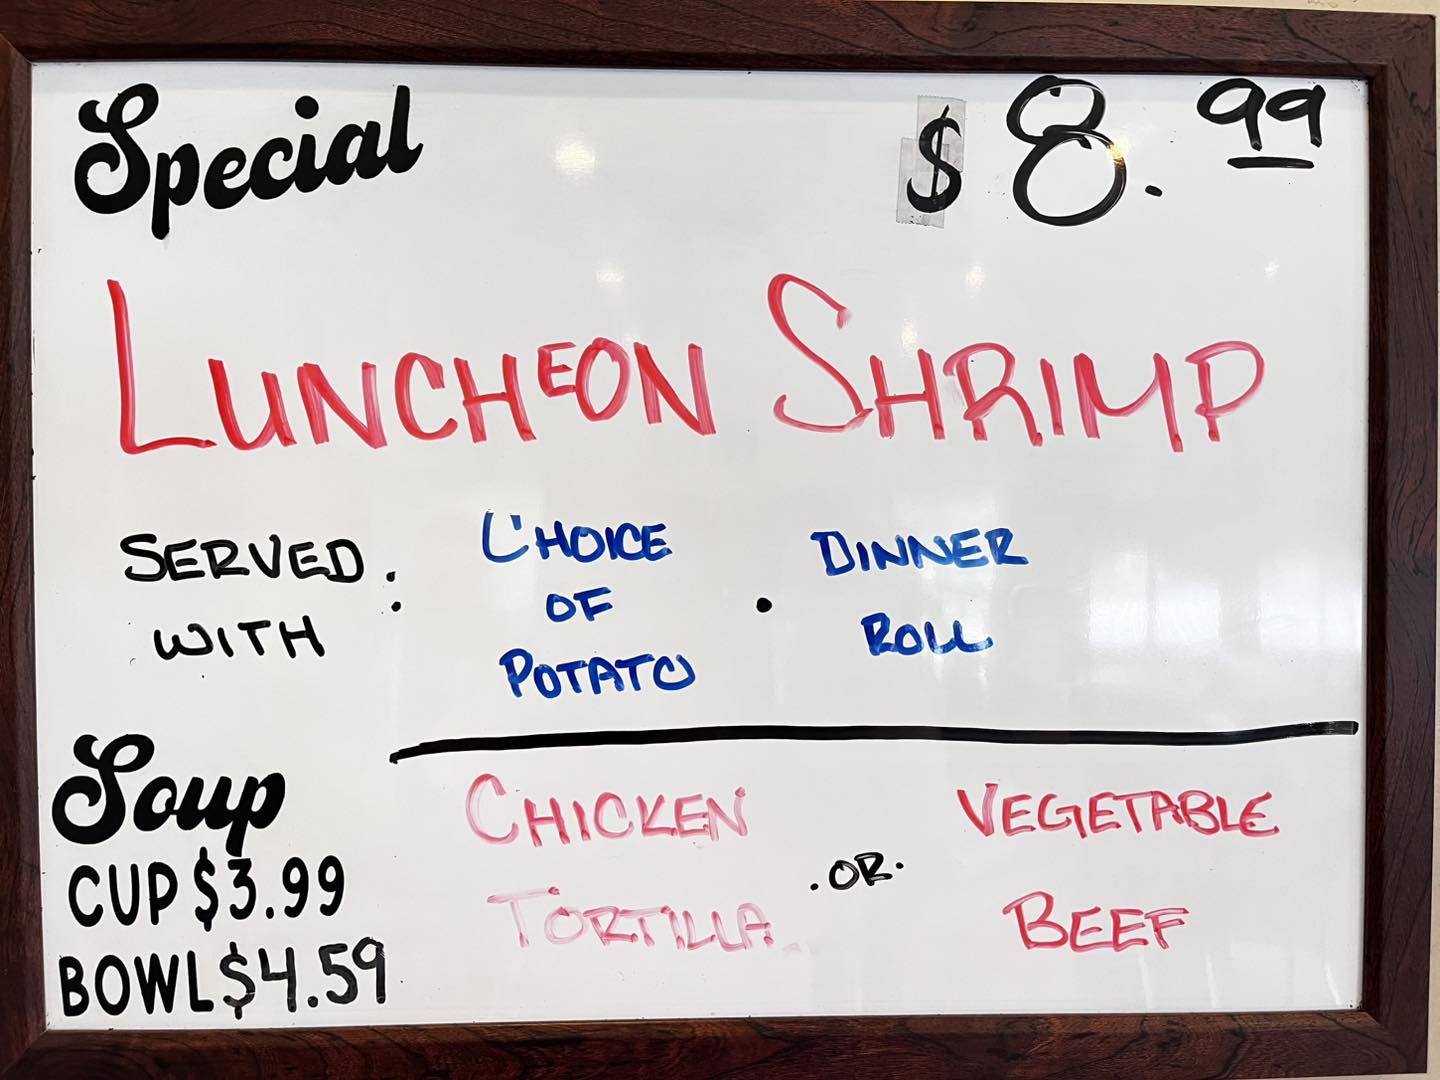 Special $8.99
LUNCHEON SHRIMP
SERVED WITH: CHOICE OF POTATO • DINNER ROLL
Soup
CUP $3.99
BOWL $4.59
CHICKEN TORTILLA .OR. VEGETABLE BEEF